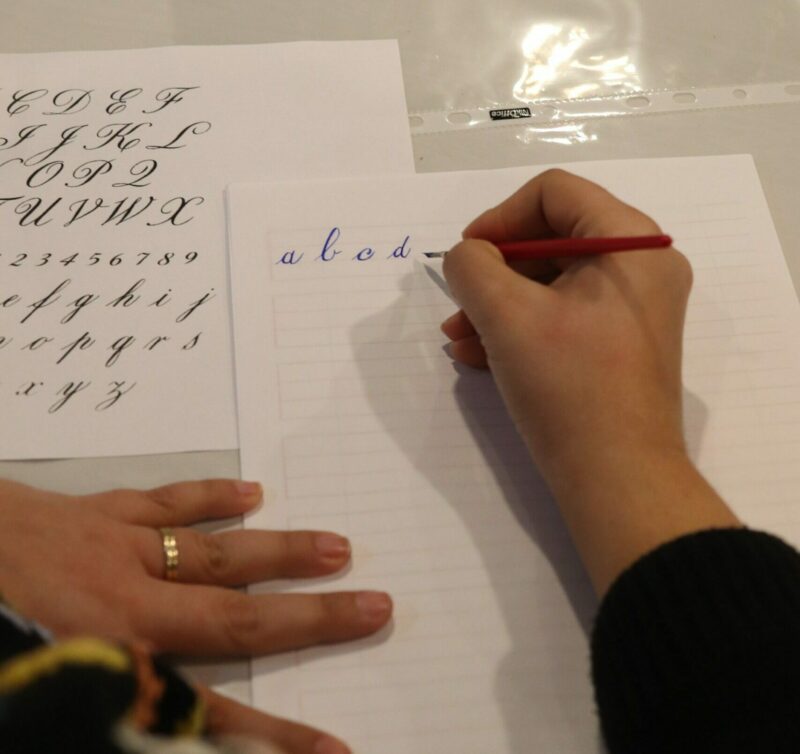 C D E F
I J K L
O P Q
T U V W X
2 3 4 5 6 7 8 9
e f g h i j
n o p q r s
x y z
a b c d
NiceOffice